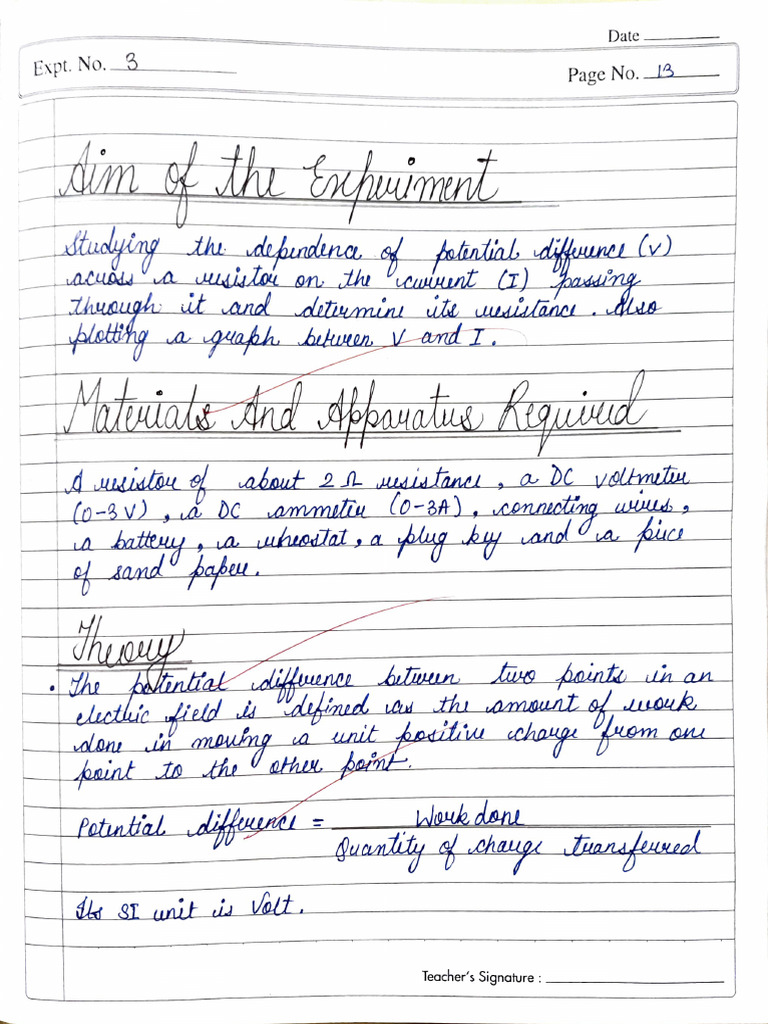 Date
Expt. No. 3
Page No. 13
Aim of the Experiment
Studying the dependence of potential difference (V)
across a resistor on the current (I) passing
through it and determine its resistance. Also
plotting a graph between V and I.
Materials And Apparatus Required
A resistor of about 2 Ω resistance, a DC voltmeter
(0-3V), a DC ammeter (0-3A), connecting wires,
a battery, a rheostat, a plug key and a piece
of sand paper.
Theory
• The potential difference between two points in an
electric field is defined as the amount of work
done in moving a unit positive charge from one
point to the other point.
Potential difference = Work done
Quantity of charge transferred
Its SI unit is Volt.
Teacher's Signature :